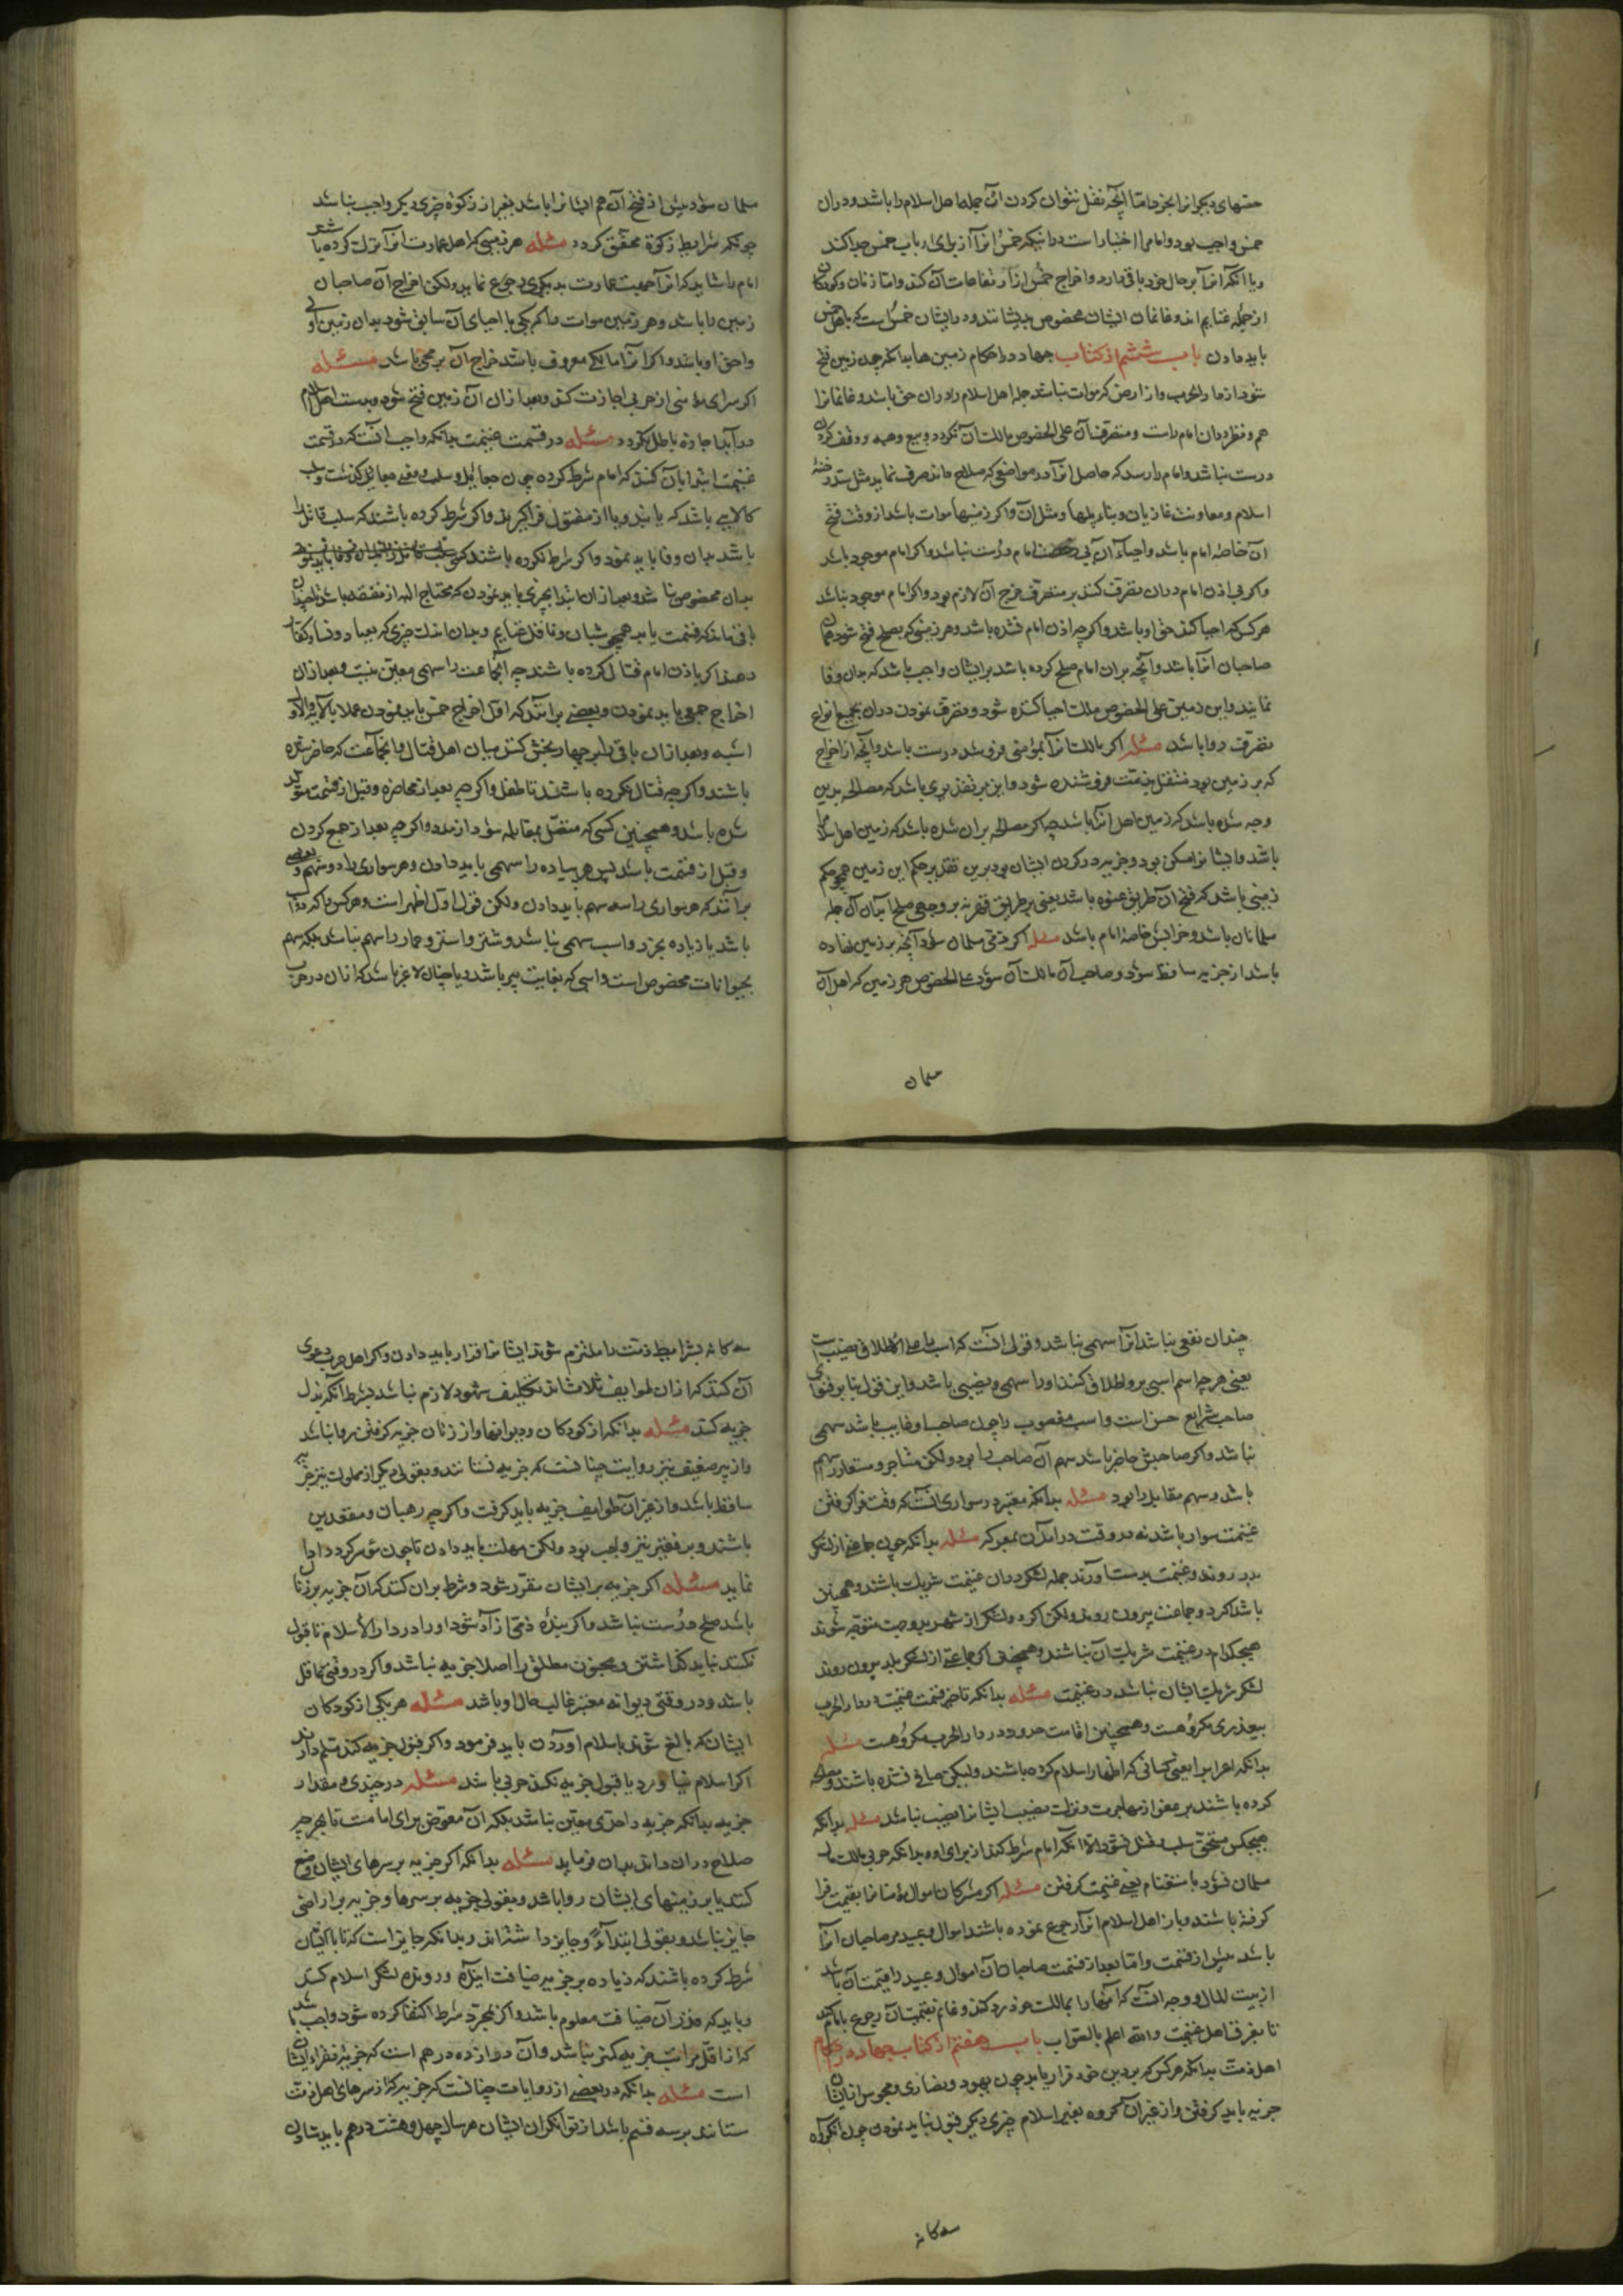 حقهای دیگر از انجزها ما آنچه نقل نتوان کردن آن جمله اهل اسلام را باشد و در آن
خمس واجب بود و امام را اختیار است در آنکه خمس آنرا از برای ارباب خمس جدا کند
و یا آنکه آنرا بر حال خود باقی دارد و اخراج خمس از ارتفاعات آن کند و اما زنان و کودکان
از جمله غنایم اند و غانمان ایشان مخصوص بدیشانند و در ایشان خمس است که باهل خمس
باید دادن باب ششم از کتاب جهاد در احکام زمین ها بدانکه چون زمین فتح
شود از دار الحرب و از ارض که موات نباشد جمله اهل اسلام را در آن حق باشد و غانمانرا
هم و نظر در آن امام راست و متصرف آن علی الخصوص مالک آن نگردد و بیع و هبه و وقف کردن
درست نباشد و امام را رسد که حاصل آنرا در مواضعی که صلاح داند صرف نماید مثل سد رخنهٔ
اسلام و معاونت غازیان و بناء پلها و مثل آن و اگر زمینها موات باشد از وقت فتح
آن خاصهٔ امام باشد و احیاء آن بی رخصت امام درست نباشد و اگر امام موجود باشد
و اگر بی اذن امام در آن تصرف کنند بر متصرف خرج آن لازم بود و اگر امام موجود نباشد
هر کس که احیا کند حق او باشد و اگر چه اذن امام نشده باشد و هر زمینی که بصلح فتح شود همان
صاحبان آنرا باشد و آنچه بر آن امام صلح کرده باشد بر ایشان واجب باشد که بدان وفا
نمایند و این زمین علی الخصوص ملک احیا کننده شود و تصرف نمودن در آن بجمیع انواع
تصرف روا باشد مسئله اگر مالک آنرا بمؤمنی فروشد درست باشد و آنچه از اخراج
که بر زمین بود منتقل بذمت فروشنده شود و این بر تقدیری باشد که مصالحه بدین
وجه شده باشد که زمین اهل آنرا باشد چه اگر مصالحه بر آن شده باشد که زمین اهل اسلام را
باشد و ایشانرا مسکن بود و جزیه در گردن ایشان بود برین تقدیر حکم این زمین همچو حکم
زمینی باشد که فتح آن بطریق عنوه باشد یعنی بر طریق قهر نه بر وجهی صلح آبادان آن جمله
مسلمانان باشد و خرابش خاصهٔ امام باشد مسئله اگر ذمی مسلمان شود آنچه بر زمین نهاده
باشد از جزیه ساقط شود و صاحب آن مالک آن شود علی الخصوص هر زمین که اهل آن
مسلمان
مسلمان شود پیش از فتح آن هم ایشانرا باشد بغیر از زکوة چیزی دیگر واجب نباشد
چونکه شرایط زکوة محقق گردد مسئله هر زمینی که اهل عمارت آنرا ترک کرده باشد
امام را شاید که آنرا جهت عمارت بدیگری رجوع نماید ولکن اخراج آن صاحبان
زمین را باشد و هر زمین موات را که کسی باحیای آن سابق شود بدان زمین اولی
و احق او باشد و اگر آنرا مالکی معروف باشد خراج آن بر محیی باشد مسئله
اگر سرای مؤمنی از حربی اجازت کند و بعد از آن آن زمین فتح شود و بدست اهل اسلام
در آید اجاره باطل نگردد مسئله در قسمت غنیمت بدانکه واجب آنست که در قسمت
غنیمت ابتدا بآن کنند که امام شرط کرده چون جعایل و سلب و معنی جعایل گذشت و سلب
کالایی باشد که با تن و یا از مقتول فراگیرند و اگر شرط کرده باشند که سلب قاتل را
باشد بدان وفا باید نمود و اگر شرط نکرده باشند
بدان مخصوص نباشد و بعد از آن ابتدا بچیزی باید نمودن که محتاج الیه از نفقه باشد تا چندان
باقی ماند که قسمت یابد همچو شبان و ناقل غنایم و بدان اندک چیزی که بعباد و نسا و کفار
دهند اگر باذن امام قتال کرده باشند چه آنجماعت را سهمی معین نیست و بعد از آن
اخراج جمعی باید نمودن و بعضی بر آنند که اول اخراج خمس باید نمودن عملا بالآیه والاول
اشبه و بعد از آن باقی را بر چهار بخش کنند میان اهل قتال و آنجماعت که حاضر شده
باشند و اگر چه قتال نکرده باشند تا طفل و اگر چه بعد از محاضره و قبل از قسمت متولد
شده باشد و همچنین کسی که متصل بمقابله شود از مدد و اگر چه بعد از جمع کردن
و قبل از قسمت باشد پس هر پیاده را سهمی باید دادن و هر سواری را دو سهم و بعضی
بر آنند که هر سواری را سه سهم باید دادن ولکن قول اول اظهر است و هر کس را که دو اسب
باشد یا زیاده بجز دو اسب سهمی نباشد و شتر و استر و حمار را سهم نباشد بلکه سهم
بحیوانات مخصوص است و اسبی که بغایت پیر باشد و یا چنان لاغر باشد که از آن در حرب
چندان نفعی نباشد آنرا سهمی نباشد و قولی آنست که اسب را علی الاطلاق نصیب است
یعنی هر چه اسم اسبی برو اطلاق کنند او را سهمی و نصیبی باشد و این قول بنا بر فتوای
صاحب شرایع حسن است و اسب مغصوب را چون صاحب او غایب باشد سهمی
نباشد و اگر صاحبش حاضر باشد سهم آن صاحب را بود ولکن مستأجر و مستعار را سهم
باشد و سهم مقابل را بود مسئله بدانکه معتبر در سواری آنست که وقت فرا گرفتن
غنیمت سوار باشد نه در وقت در آمدن بمعرکه مسئله بدانکه چون جماعتی از لشکر
بدر روند و غنیمت بدست آورند جمله لشکر در آن غنیمت شریک باشند و همچنین
باشد اگر دو جماعت بیرون روند ولکن اگر دو لشکر از شهر بدو جهت متوجه شوند
هیچکدام در غنیمت شریک آن نباشند و همچنین اگر جماعتی از لشکر بلد بیرون روند
لشکر شریک ایشان نباشد در غنیمت مسئله بدانکه تاخیر قسمت غنیمت در دار الحرب
بیعذری مکروهست و همچنین اقامت حدود در دار الحرب مکروهست مسئله
بدانکه اعراب را یعنی کسانی که اظهار اسلام کرده باشند ولیکن صافی نشده باشند و مصالحه
کرده باشند بر عفو از مهاجرت و ترک نصیب ایشانرا نصیب نباشد مسئله بدانکه
هیچکس مستحق سلب و نفل نشود الا آنکه امام شرط کند از برای او و بدانکه حربی مالک مال
مسلمان نشود باستغنام یعنی غنیمت گرفتن مسئله اگر مشرکان اموال مؤمنانرا بقیمت فرا
گرفته باشند و باز اهل اسلام آنرا رجوع نموده باشند اموال و عبید مر صاحبان آنرا
باشد پیش از قسمت و اما بعد از قسمت صاحبان آن اموال و عبید را قیمت آن باشد
از بیت المال و وجه آنست که آنها را بمالک خود رد کند و غانم بقیمت آن رجوع بامام کند
تا بفرق اهل غنیمت والله اعلم بالصواب باب هفتم از کتاب جهاد در احکام
اهل ذمت بدانکه هر کس که بر دین خود قرار یابد چون یهود و نصاری و مجوس از ایشان
جزیه باید گرفتن و از غیر آن گروه بغیر اسلام چیزی دیگر قبول نباید نمودن چون آنگروه
سه کانه
سه کانه بشرایط ذمت را ملتزم شوند ایشانرا قرار باید دادن و اگر اهل حرب دعوی
آن کنند که از آن طوایف ثلاث اند تکلیف شهود لازم نباشد بشرط آنکه بذل
جزیه کنند مسئله بدانکه از کودکان و دیوانها و از زنان جزیه گرفتن روا نباشد
و از پیر ضعیف نیز روایت چنانست که جزیه نستانند و بقولی دیگر از مملوک نیز جزیه
ساقط باشد و از غیر آن طوایف جزیه باید گرفت و اگر چه رهبان و مقعدین
باشند و بر فقیر نیز واجب بود ولکن مهلت باید دادن تا چون موسر گردد ادا
نماید مسئله اگر جزیه بر ایشان مقرر شود و شرط بر آن کنند که آن جزیه بر زنان
باشد صلح درست نباشد و اگر بندهٔ ذمی آزاد شود او را در دار الاسلام تا قبول
نکند نباید گذاشتن و مجنون مطلق را اصلا جزیه نباشد و اگر در وقتی عاقل
باشد و در وقتی دیوانه معتبر غالب حال او باشد مسئله هر یکی از کودکان
ایشان که بالغ شوند باسلام آوردن باید فرمود و اگر قبول جزیه کند مسلم دارند
اگر اسلام نیاورد یا قبول جزیه نکند حربی باشد مسئله در چندی و مقدار
جزیه بدانکه جزیه را حدی معین نباشد بلکه آن مفوض برای امامت تا بهر چه
صلاح در آن داند بدان فرماید مسئله بدانکه اگر جزیه بر سرهای ایشان وضع
کنند یا بر زمینهای ایشان روا باشد و بقولی جزیه بر سرها و جزیه بر اراضی
جایز نباشد و بقولی ابتداءً و جایز داشته‌اند و بدانکه جایز است که تا با ایشان
شرط کرده باشند که زیاده بر جزیه ضیافت آینده و روندهٔ لشکر اسلام کنند
و باید که قدر آن ضیافت معلوم باشد و اگر بمجرد شرط اکتفا کرده شود واجب باشد
که از اقل مراتب جزیه کمتر نباشد و آن دوازده درهم است که جزیهٔ فقراء ایشان
است مسئله بدانکه در بعضی از روایات چنانست که جزیه که از سرهای اهل ذمت
ستانند بر سه قسم باشد از توانگران ایشان هر سال چهل و هشت درهم باید ستادن